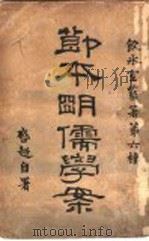 飲冰室叢著第六種
節本明儒學案
啓超自署